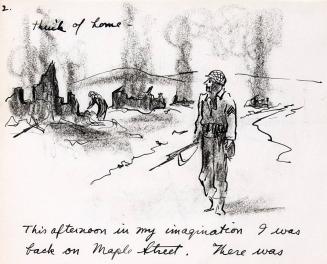 2.
think of home -
This afternoon in my imagination I was
back on Maple Street. There was